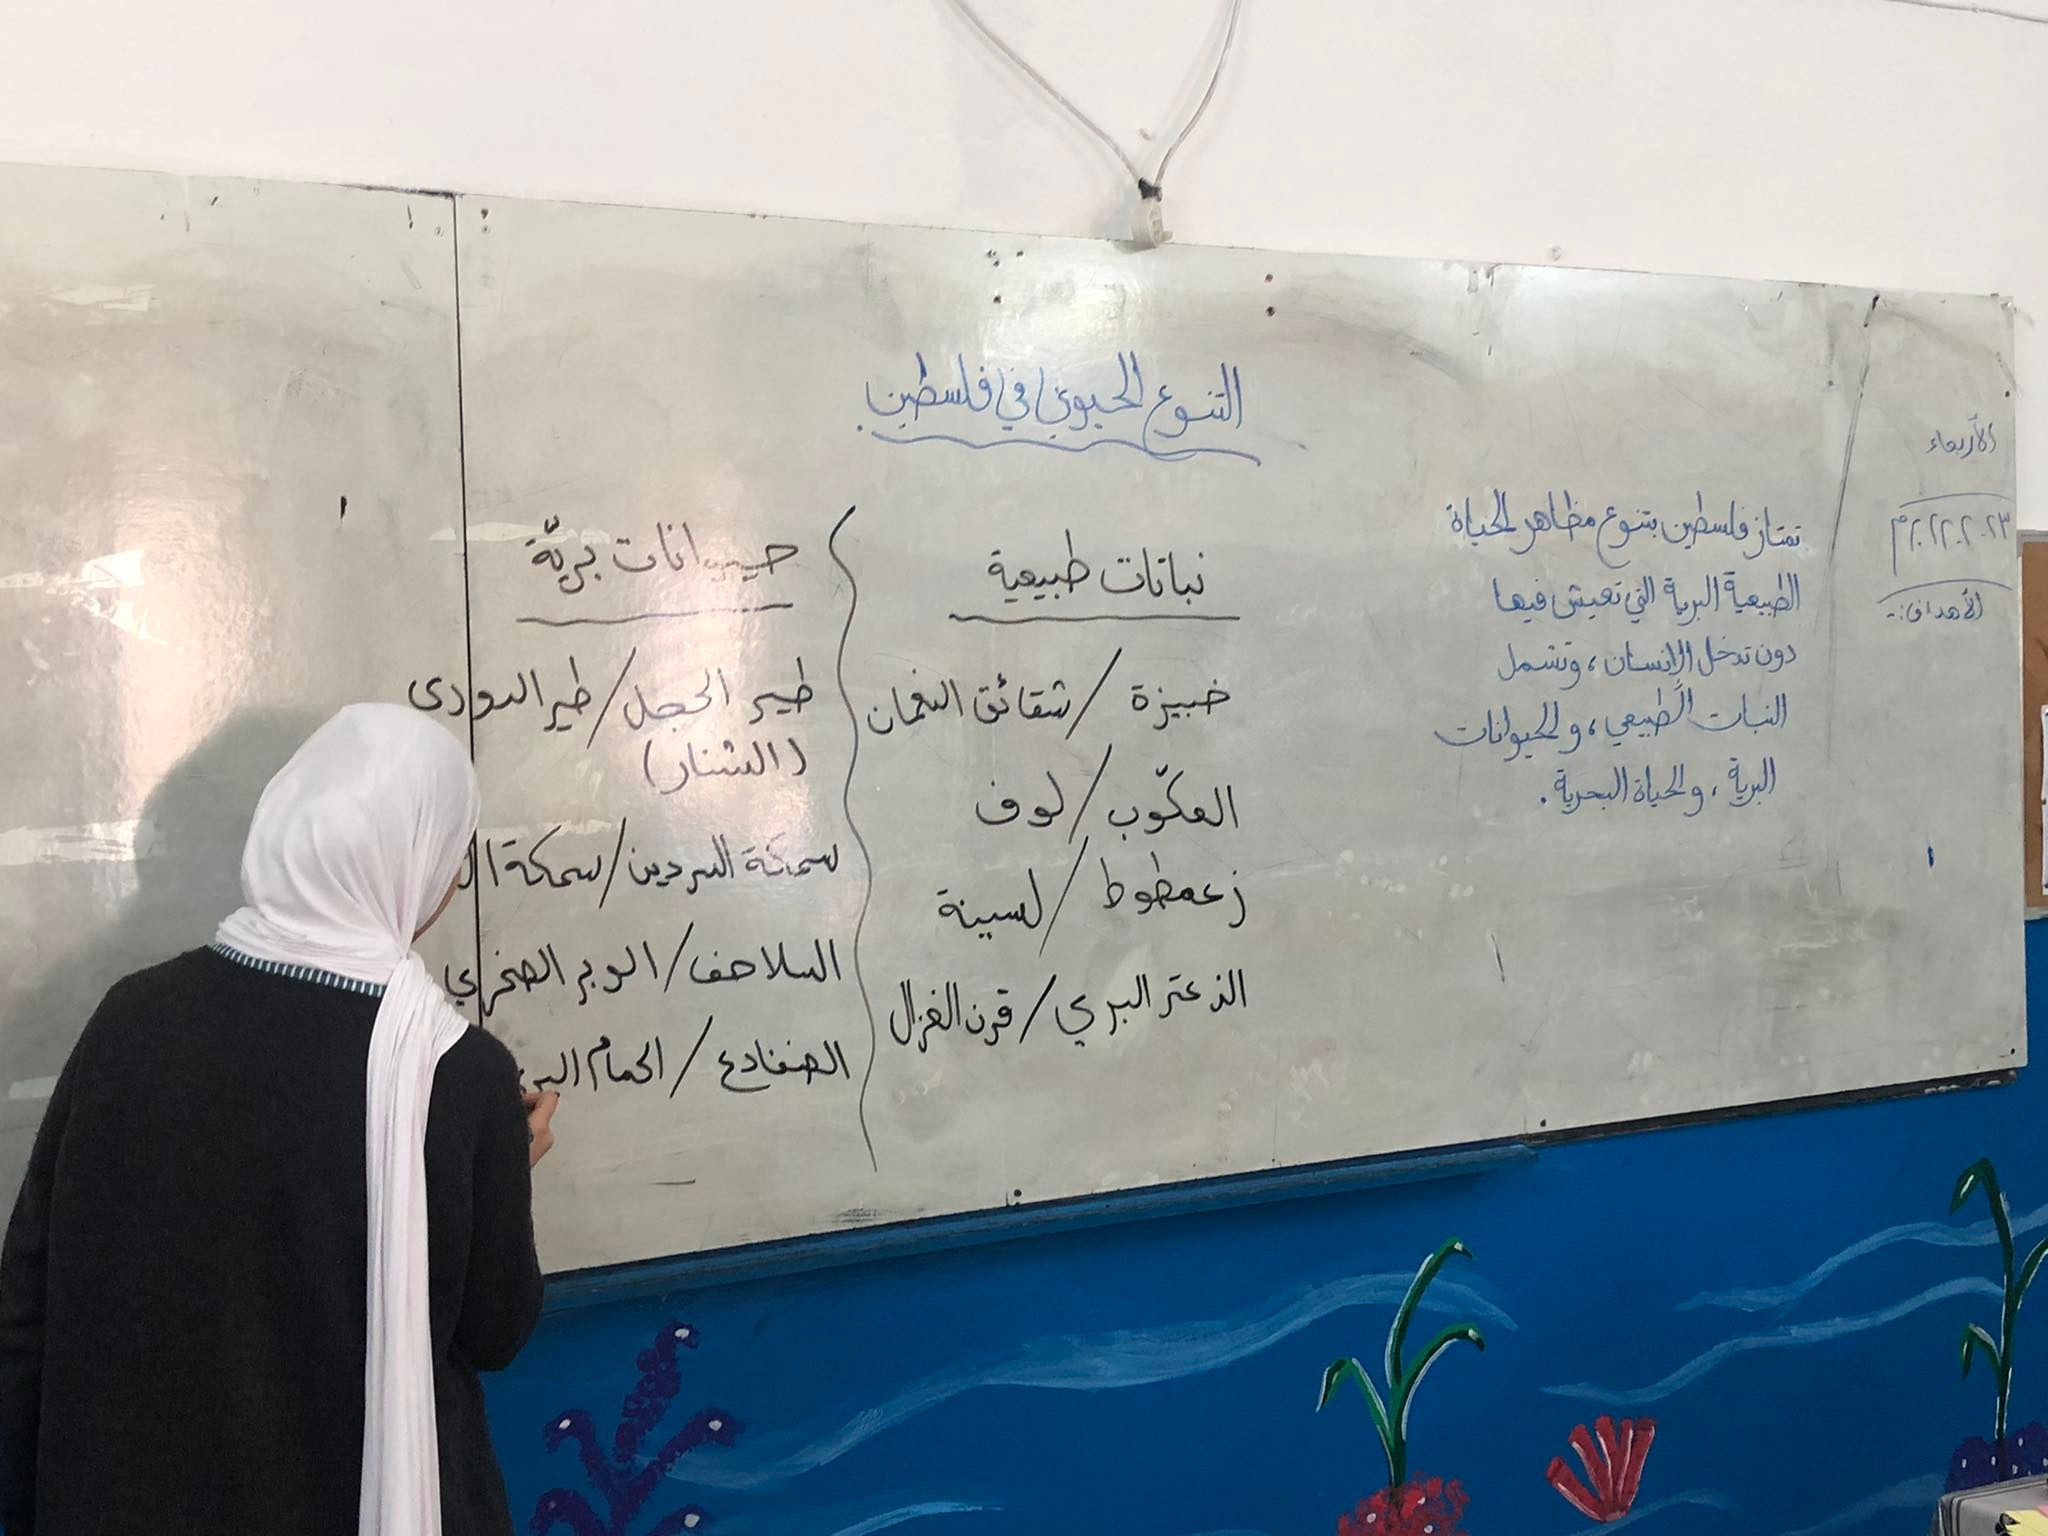 التنوع الحيوي في فلسطين
الأربعاء
٢٠٢٢.٢.٢٣م
الأهداف:-
تمتاز فلسطين بتنوع مظاهر الحياة
الطبيعية البرية التي تعيش فيها
دون تدخل الإنسان، وتشمل
النبات الطبيعي، والحيوانات
البرية، والحياة البحرية.
نباتات طبيعية
خبيزة / شقائق النعمان
العكّوب / لوف
زعمطوط / لسينة
الزعتر البري / قرن الغزال
حيوانات بريّة
طير الحجل / طير الدوري
(الشنار)
سمكة السردين / سمكة
السلاحف / الوبر الصخري
الضفادع / الحمام